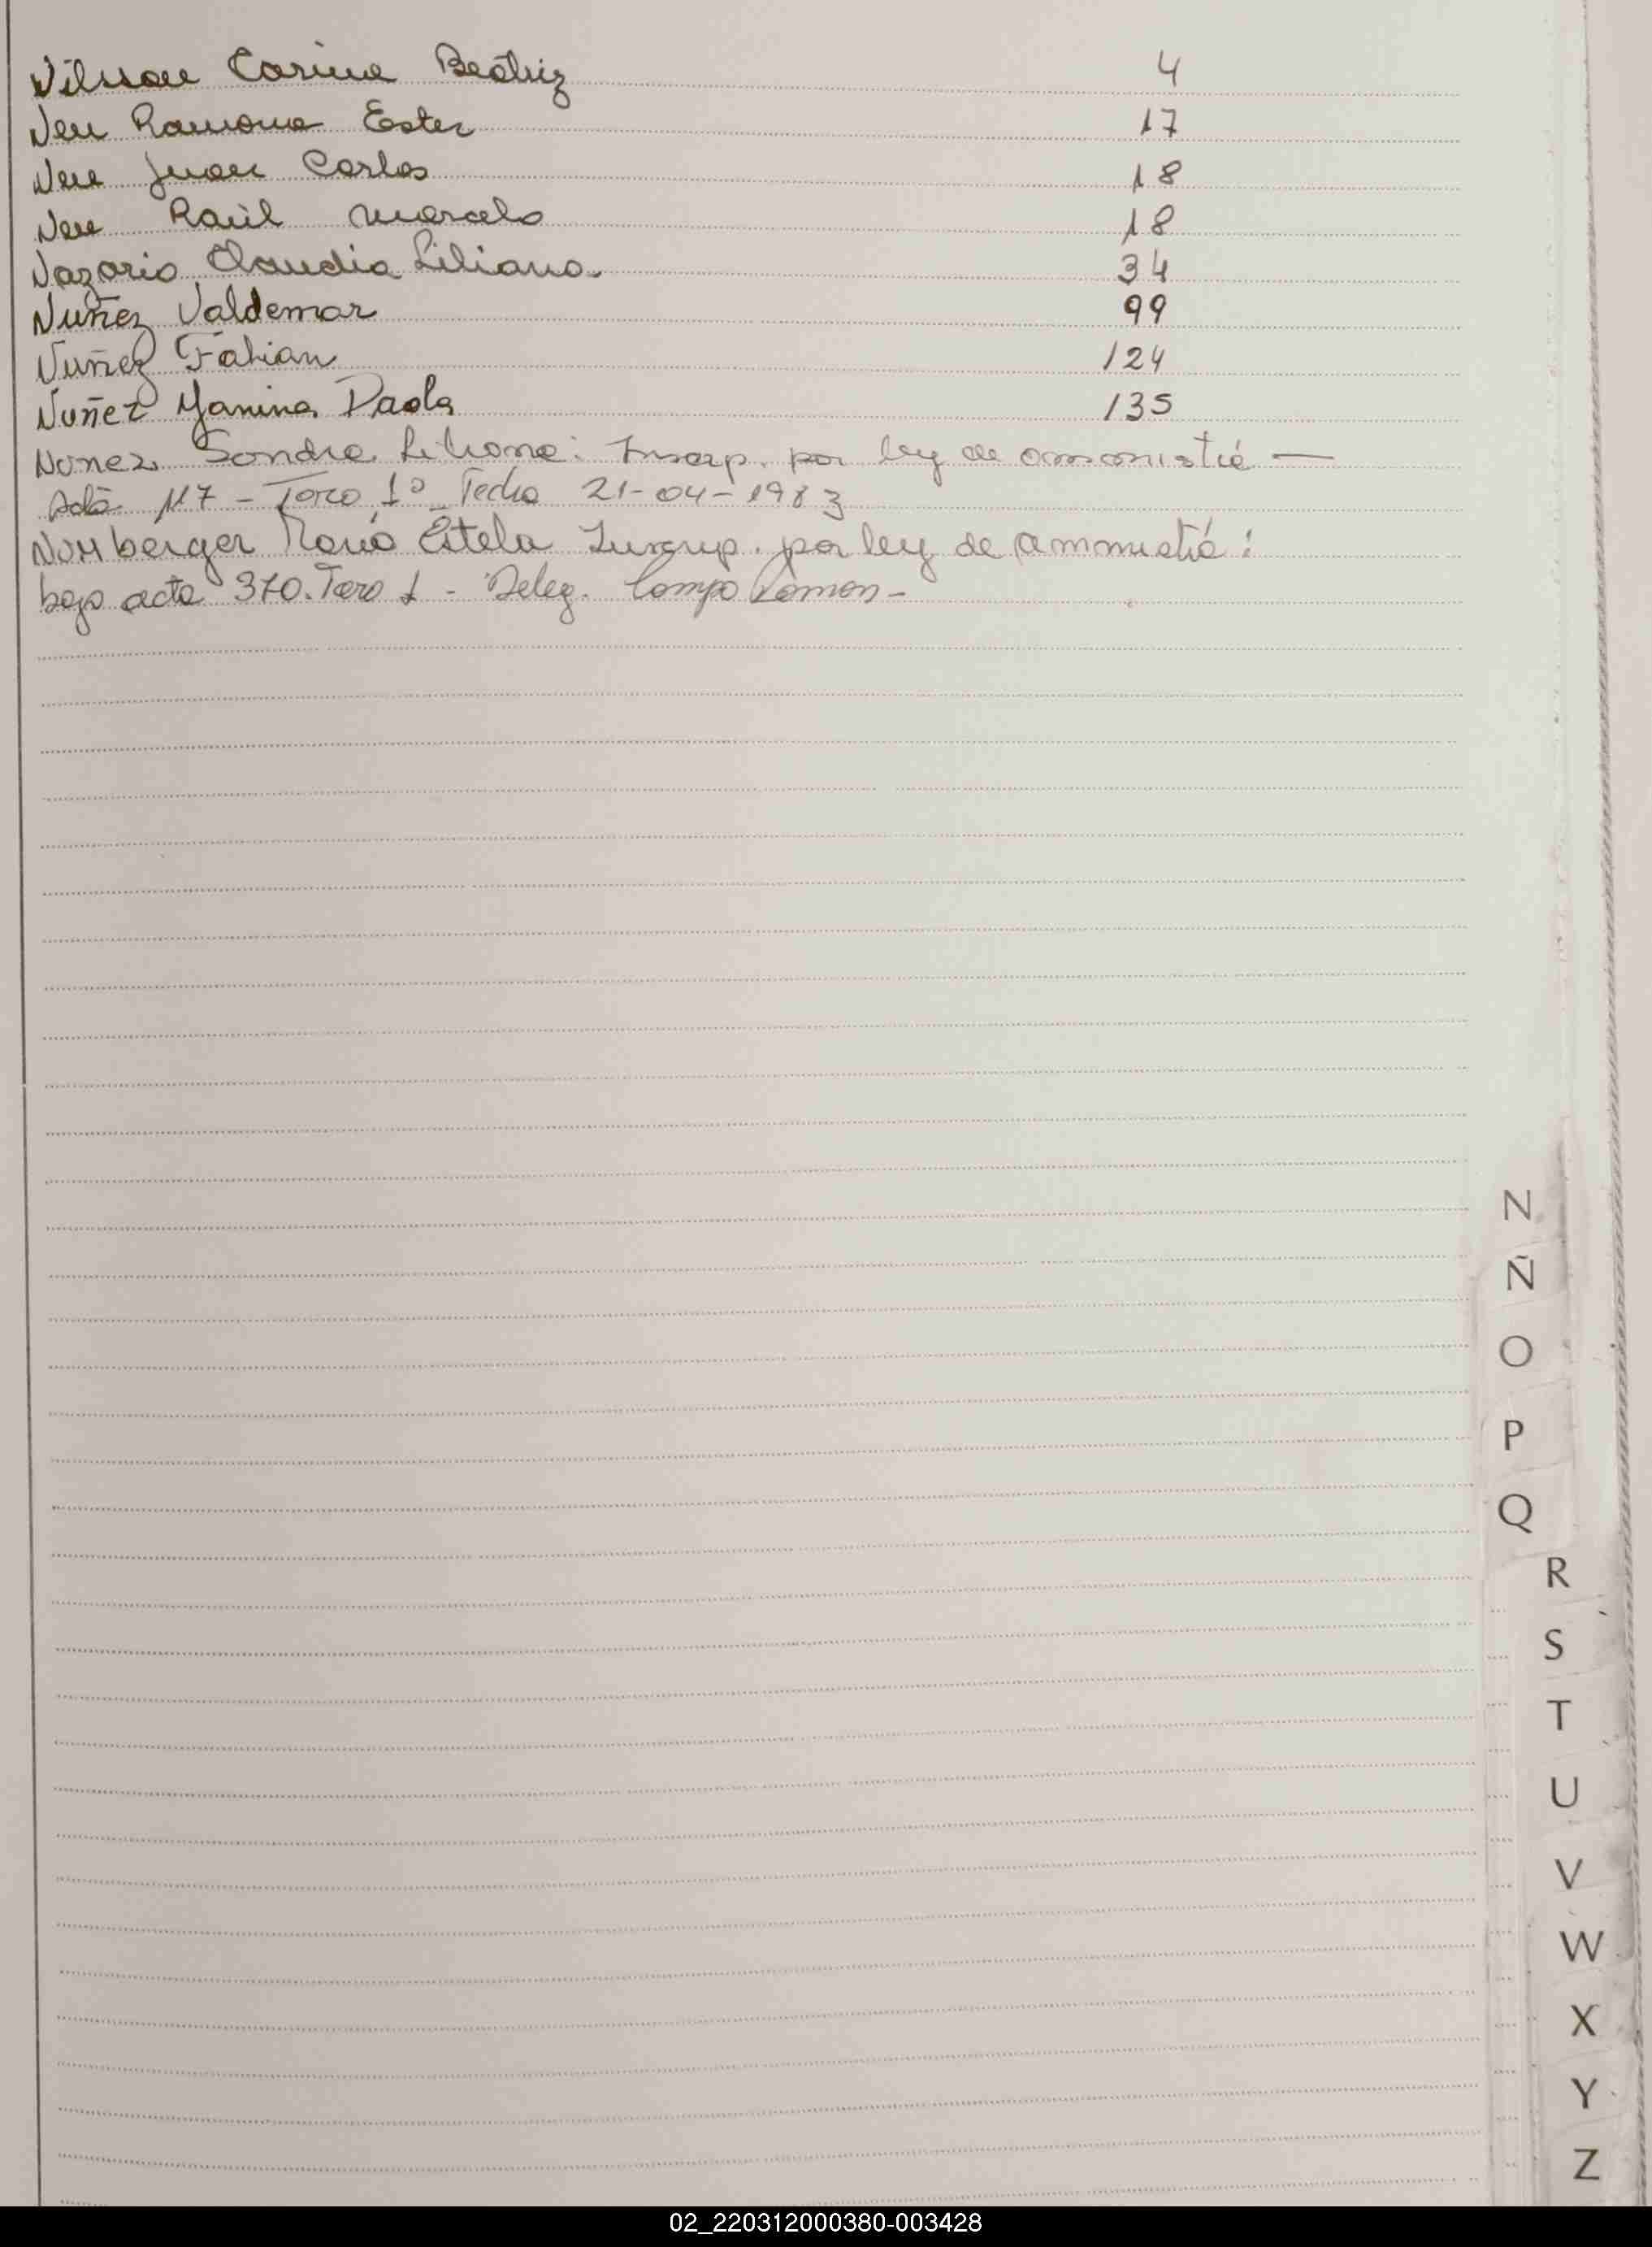 Nilsson Carina Beatriz 4
Neu Ramona Ester 17
Neu Juan Carlos 18
Neu Raúl Marcelo 18
Nazario Claudia Liliana 34
Nuñez Valdemar 99
Nuñez Fabian 124
Nuñez Yanina Paola 135
Nunez Sandra Liliana: Inscrip. por ley de amnistiá —
Acta 117 - Tomo 1º Fecha 21-04-1983
Nornberger María Estela Inscrip. por ley de ammistiá:
bajo acta 370. Tomo 1 - Deleg. Campo Ramon -
N
Ñ
O
P
Q
R
S
T
U
V
W
X
Y
Z
02_220312000380-003428